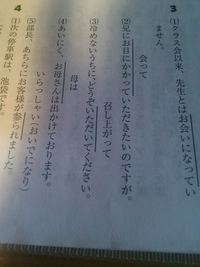 3
(1)クラス会以来、先生とはお会いになってい
ません。
会って
(2)兄にお目にかかっていただきたいのですが。
(3)冷めないうちに、どうぞいただいてください。
召し上がって
(4)あいにく、お母さんは出かけております。
母は
(5)部長、あちらにお客様が参られました。
いらっしゃい(おいでになり)
4
(1)次の停車駅は、池袋です。